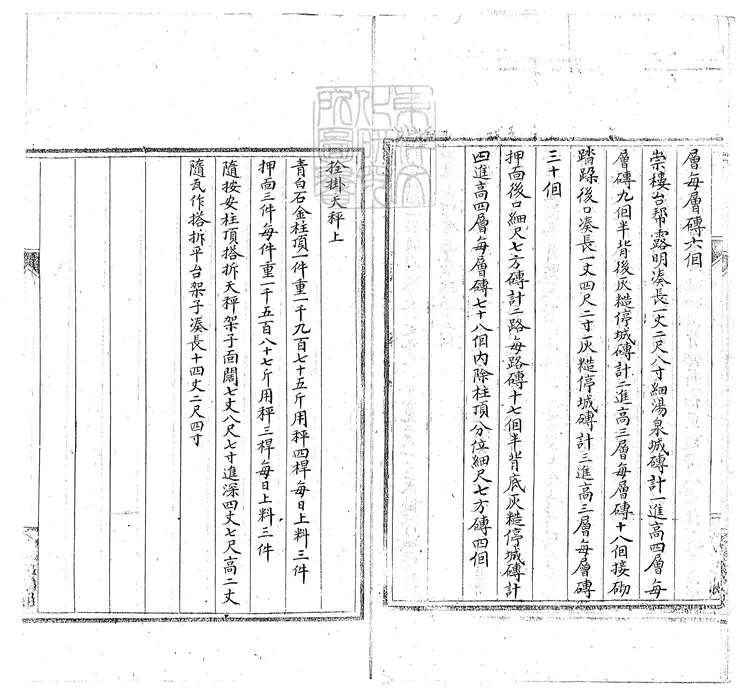 層每層磚六個
崇樓台幫露明湊長一丈二尺八寸細湯泉城磚計一進高四層每
層磚九個半背後灰糙停城磚計二進高三層每層磚十八個接砌
踏跺後口湊長一丈四尺二寸一灰糙停城磚計三進高三層每層磚
三十個
押面後口細尺七方磚計二路每路磚十七個半背底灰糙停城磚計
四進高四層每層磚七十八個內除柱頂分位細尺七方磚四個
拴掛天秤上
青白石金柱頂一件重一千九百七十五斤用秤四桿每日上料三件
押面三件每件重一千五百八十七斤用秤三桿每日上料三件
隨按安柱頂搭拆天秤架子面闊七丈八尺七寸進深四丈七尺高二丈
隨瓦作搭拆平台架子湊長十四丈二尺四寸